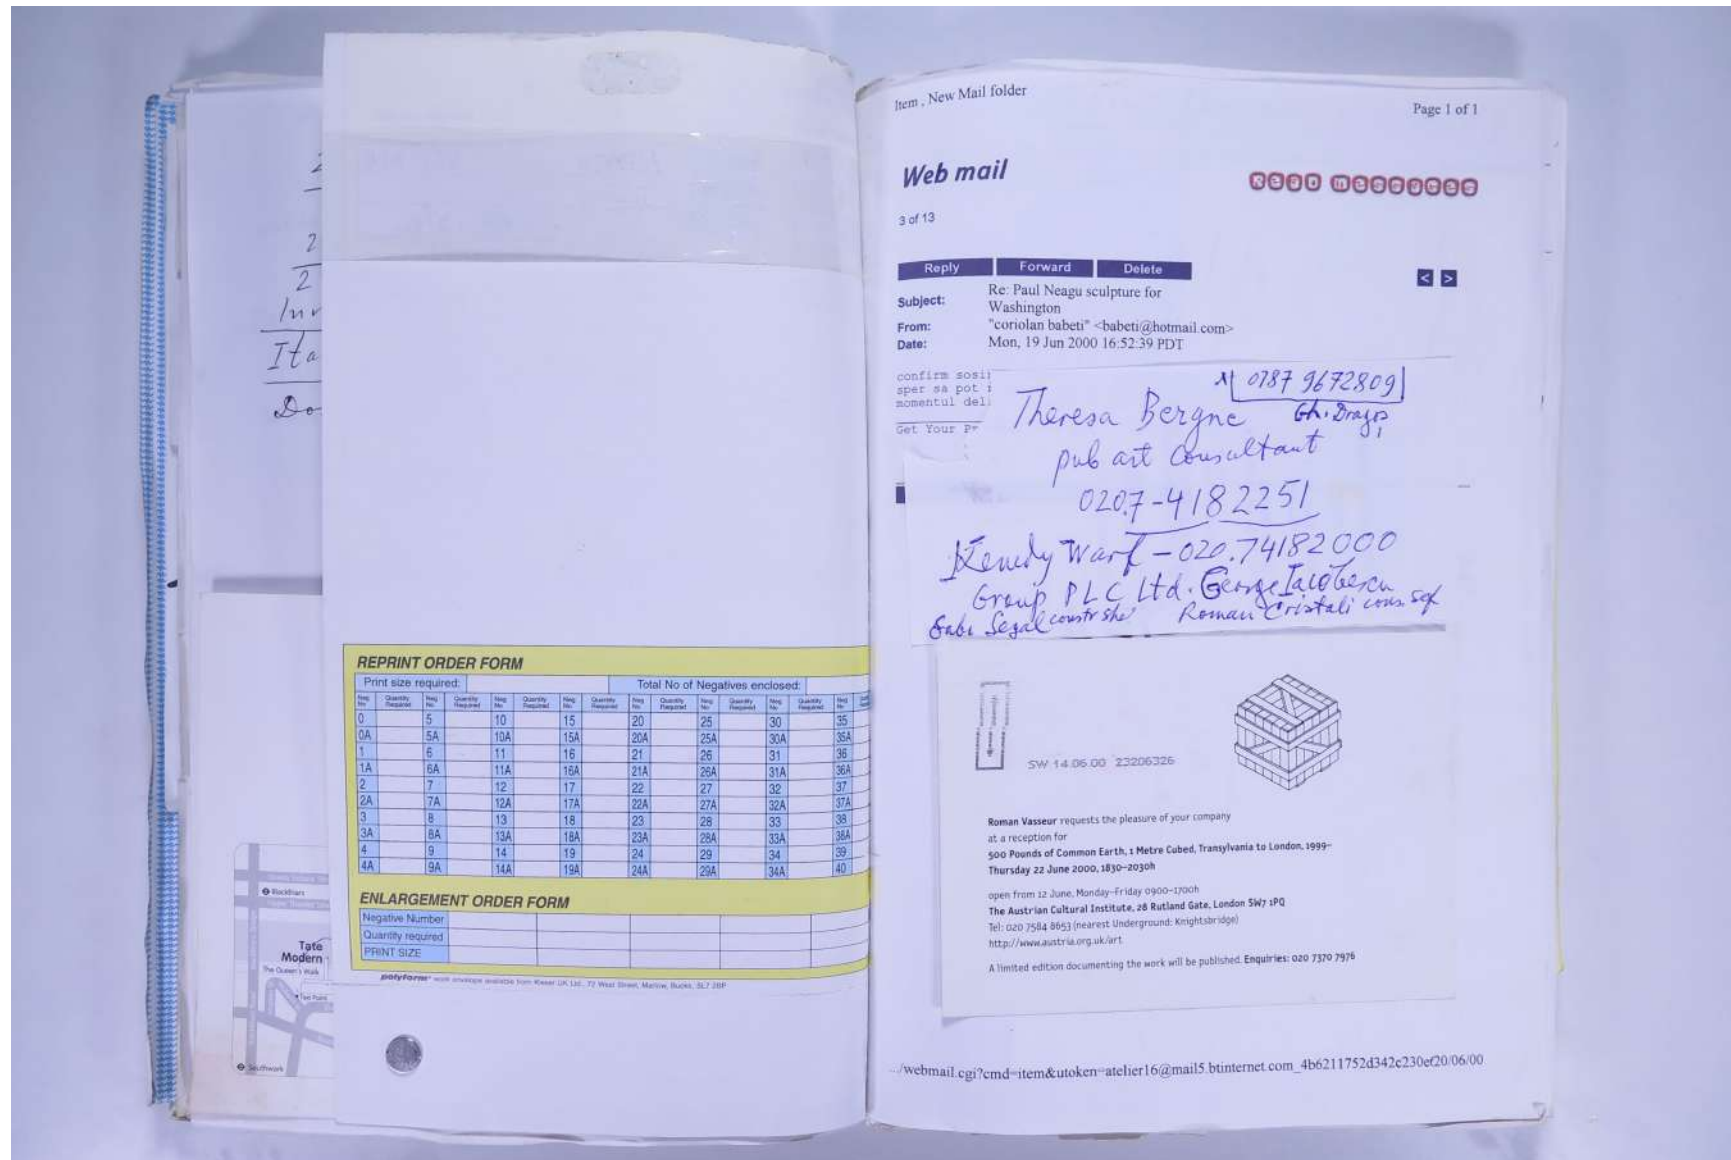 2
2
2
Inv
Ita
Do
Blackfriars
Tate
Modern
The Queen's Walk
Southwark
REPRINT ORDER FORM
Print size required: Total No of Negatives enclosed:
Neg No Quantity Required Neg No Quantity Required Neg No Quantity Required Neg No Quantity Required Neg No Quantity Required Neg No Quantity Required Neg No Quantity Required Neg No
0 5 10 15 20 25 30 35
0A 5A 10A 15A 20A 25A 30A 35A
1 6 11 16 21 26 31 36
1A 6A 11A 16A 21A 26A 31A 36A
2 7 12 17 22 27 32 37
2A 7A 12A 17A 22A 27A 32A 37A
3 8 13 18 23 28 33 38
3A 8A 13A 18A 23A 28A 33A 38A
4 9 14 19 24 29 34 39
4A 9A 14A 19A 24A 29A 34A 40
ENLARGEMENT ORDER FORM
Negative Number
Quantity required
PRINT SIZE
polyform work envelope available from Kieser UK Ltd., 77 West Street, Marlow, Bucks, SL7 2BP
Item , New Mail folder
Page 1 of 1
Web mail
Read messages
3 of 13
Reply Forward Delete
< >
Subject: Re: Paul Neagu sculpture for
Washington
From: "coriolan babeti" <babeti@hotmail.com>
Date: Mon, 19 Jun 2000 16:52:39 PDT
confirm sosi
sper sa pot
momentul del
Get Your Pr
0787 9672809
Theresa Bergne Gh. Dragos
pub art Consultant
0207-4182251
Kenedy Warf - 020.74182000
Group PLC Ltd. George Iacobescu
Gabi Segal constr she Roman Cristali cons. sef
SW 14.06.00 23206326
Roman Vasseur requests the pleasure of your company
at a reception for
500 Pounds of Common Earth, 1 Metre Cubed, Transylvania to London, 1999–
Thursday 22 June 2000, 1830–2030h
open from 12 June, Monday–Friday 0900–1700h
The Austrian Cultural Institute, 28 Rutland Gate, London SW7 1PQ
Tel: 020 7584 8653 (nearest Underground: Knightsbridge)
http://www.austria.org.uk/art
A limited edition documenting the work will be published. Enquiries: 020 7370 7976
.../webmail.cgi?cmd=item&utoken=atelier16@mail5.btinternet.com_4b6211752d342c230ef20/06/00